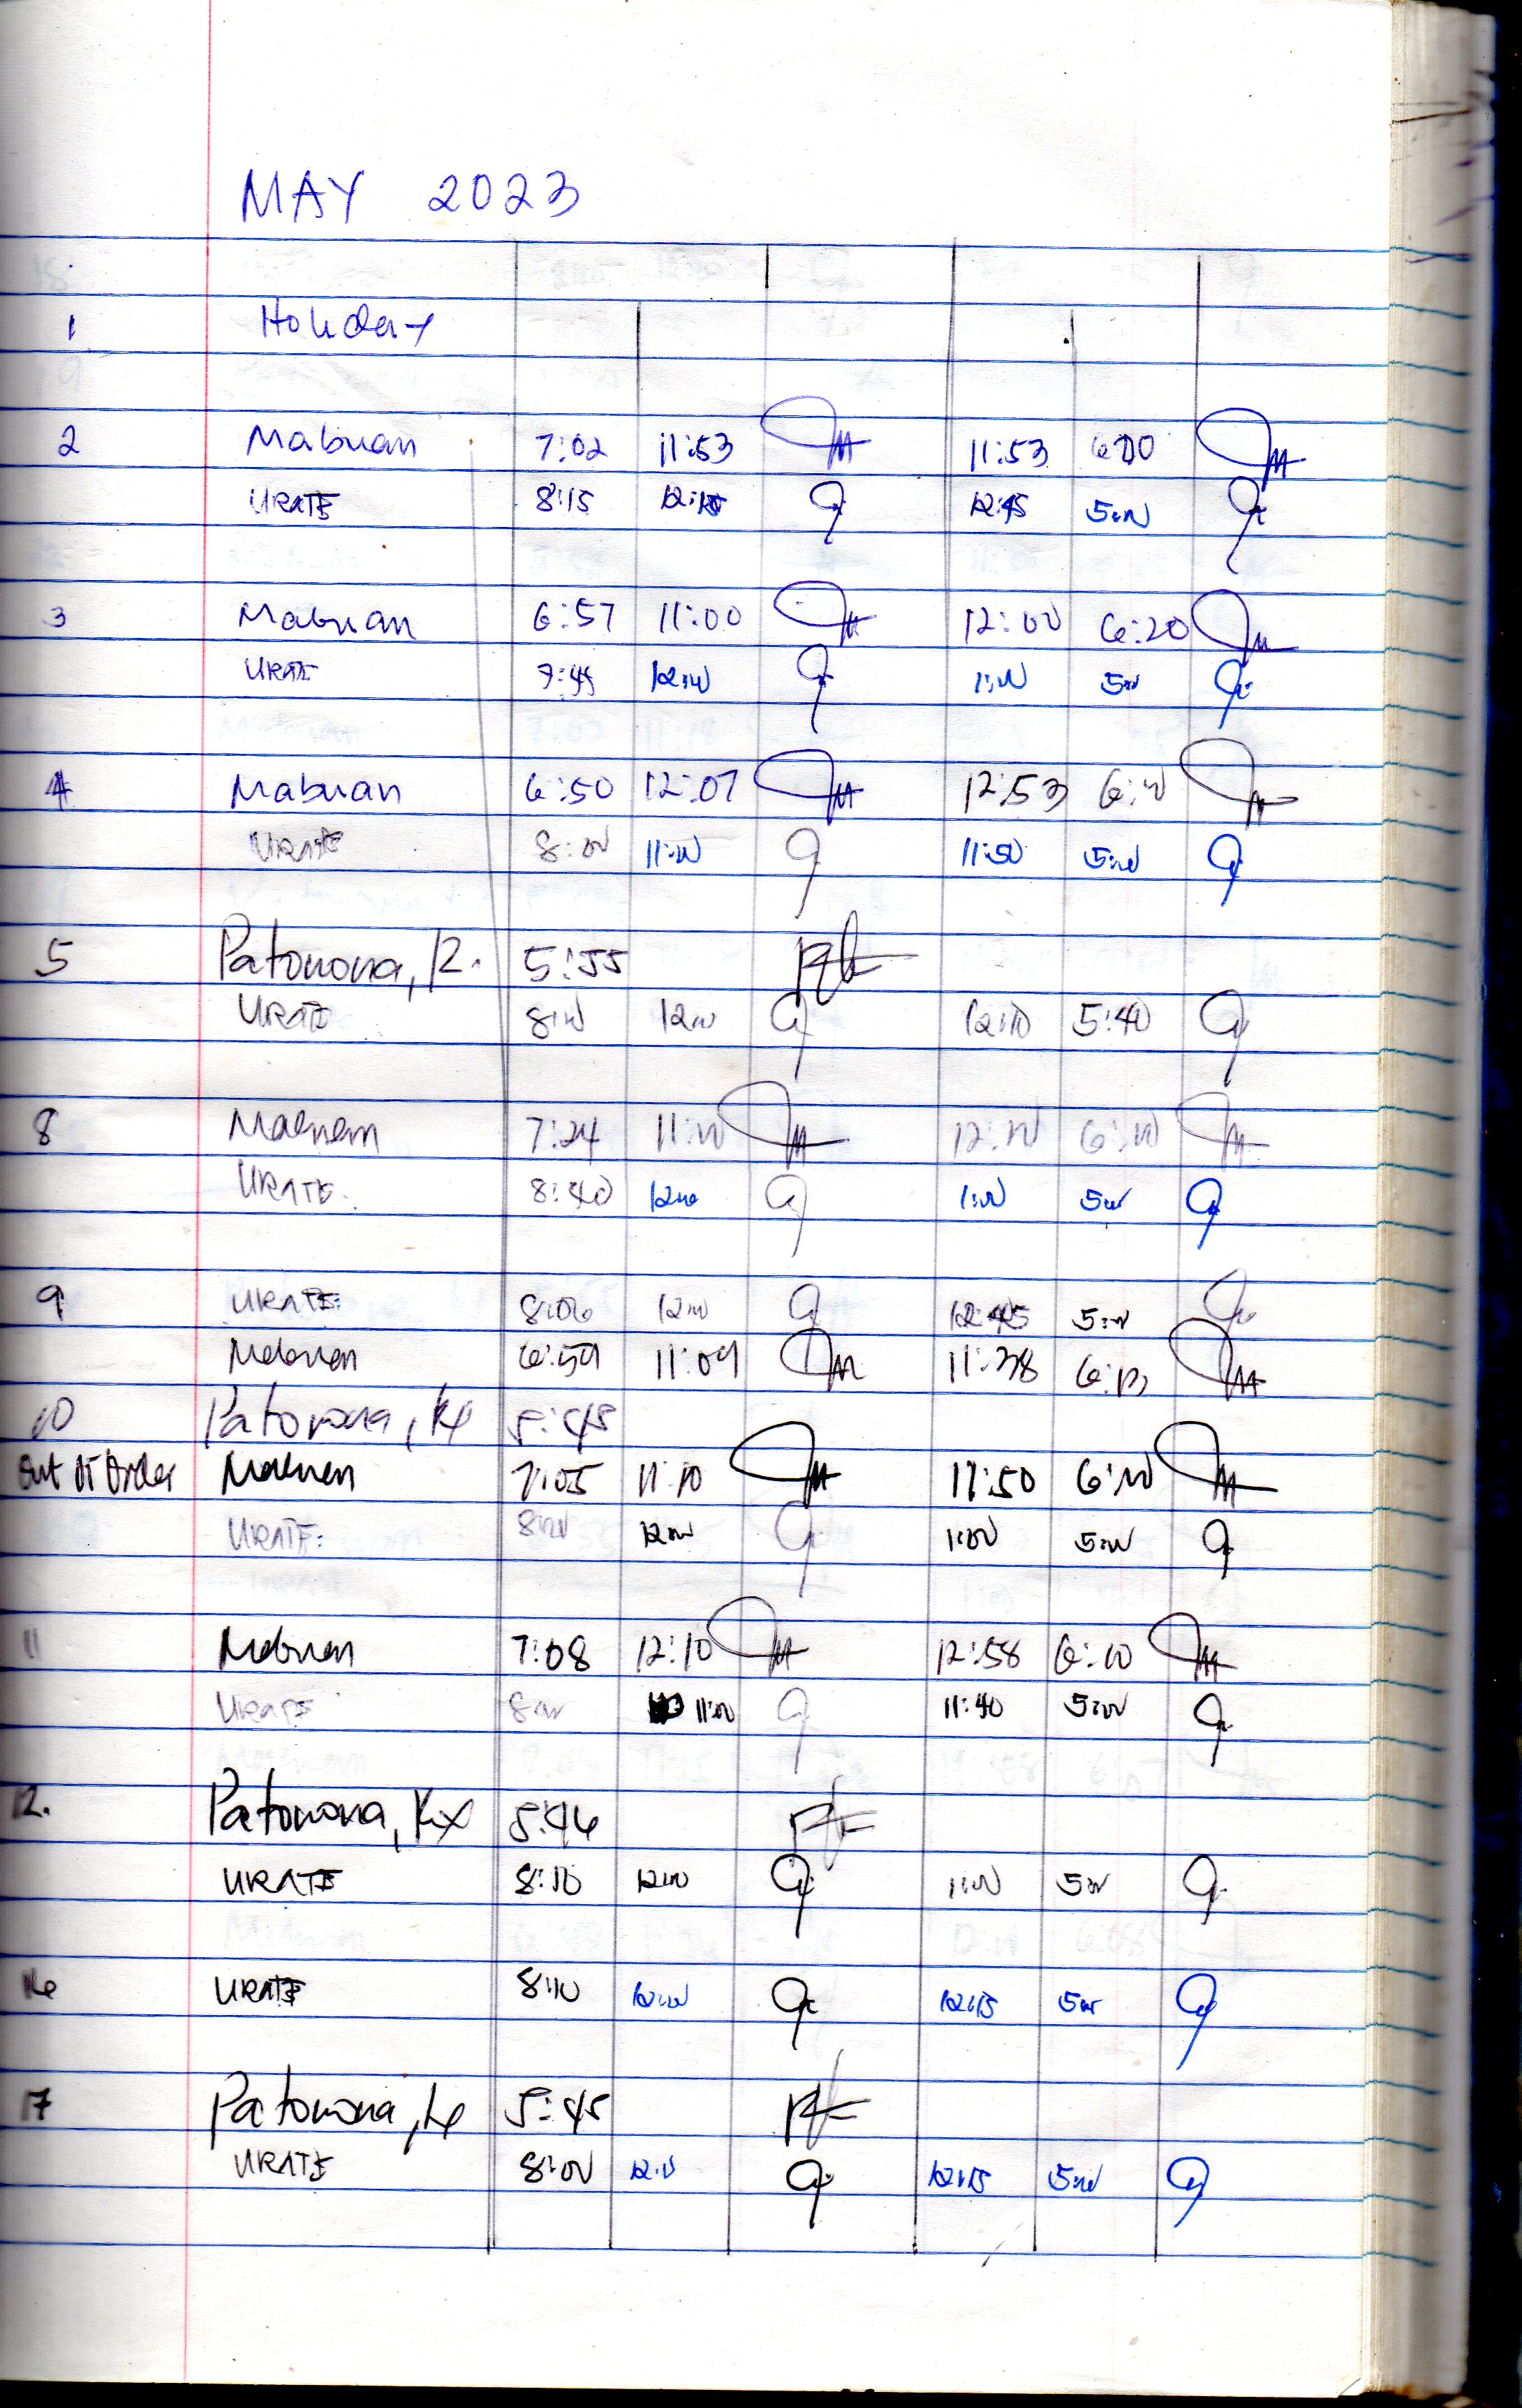 MAY 2023
1 Holiday
2 Mabuan 7:02 11:53 11:53 6:00
URATE 8:15 12:15 12:45 5:00
3 Mabuan 6:57 11:00 12:00 6:20
URATE 7:45 12:00 1:00 5:00
4 Mabuan 6:50 12:07 12:53 6:00
URATE 8:00 11:00 11:50 5:00
5 Patonona, R. 5:55
URATE 8:00 12:00 12:10 5:40
8 Mabuan 7:24 11:00 12:00 6:00
URATE 8:40 12:00 1:00 5:00
9 URATE 8:06 12:00 12:45 5:00
Mabuan 6:59 11:09 11:38
10 Patonona, 5:45
Out of Order Mabuan 7:05 11:10 11:50 6:00
URATE 8:00 12:00 1:00 5:00
11 Mabuan 7:08 12:10 12:58 6:10
URATE 8:00 11:00 11:40 5:00
12. Patonona, 5:46
URATE 8:10 12:00 1:00 5:00
16 URATE 8:10 12:00 12:15 5:00
17 Patonona, 5:45
URATE 8:00 12:00 12:15 5:00